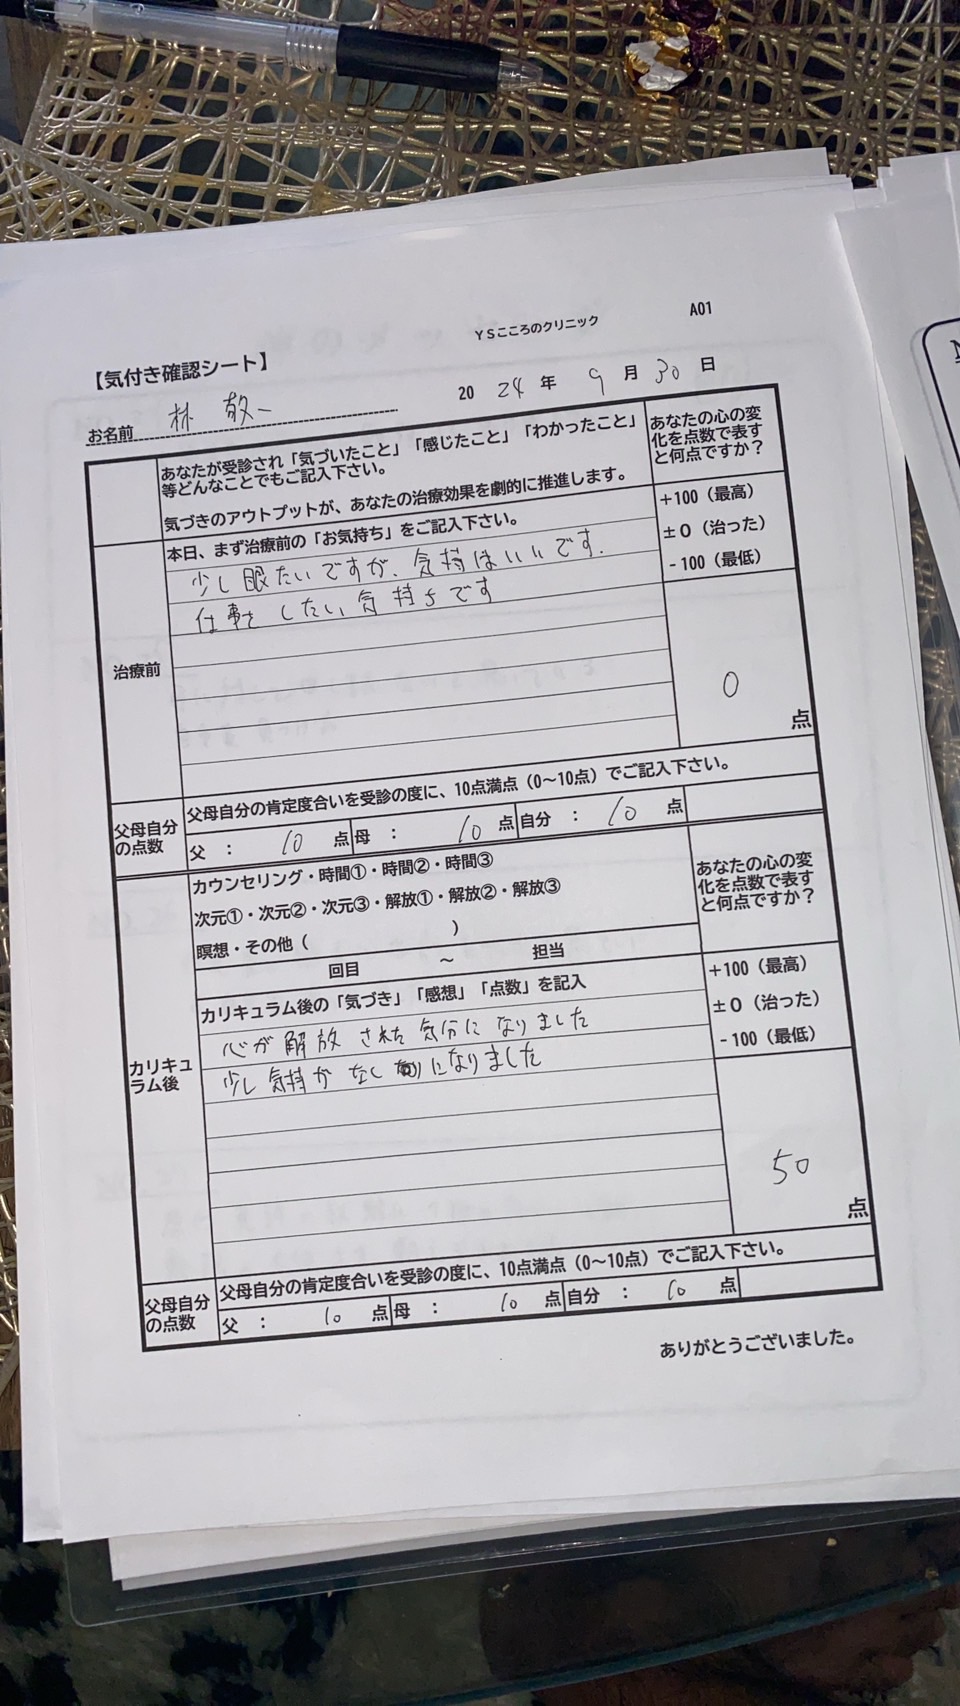 A01
YSこころのクリニック
【気付き確認シート】
20 24 年 9 月 30 日
お名前 林 敬一
あなたが受診され「気づいたこと」「感じたこと」「わかったこと」
等どんなことでもご記入下さい。
気づきのアウトプットが、あなたの治療効果を劇的に推進します。
あなたの心の変
化を点数で表す
と何点ですか？
治療前
本日、まず治療前の「お気持ち」をご記入下さい。
少し眠たいですが、気持はいいです.
仕事をしたい気持ちです
+100（最高）
±0（治った）
-100（最低）
0
点
父母自分
の点数
父母自分の肯定度合いを受診の度に、10点満点（0～10点）でご記入下さい。
父 ： 10 点 母 ： 10 点 自分 ： 10 点
カリキュ
ラム後
カウンセリング・時間①・時間②・時間③
次元①・次元②・次元③・解放①・解放②・解放③
瞑想・その他（ ）
回目 ～ 担当
あなたの心の変
化を点数で表す
と何点ですか？
カリキュラム後の「気づき」「感想」「点数」を記入
心が解放された気分になりました
少し気持が なくになりました
+100（最高）
±0（治った）
-100（最低）
50
点
父母自分
の点数
父母自分の肯定度合いを受診の度に、10点満点（0～10点）でご記入下さい。
父 ： 10 点 母 ： 10 点 自分 ： 10 点
ありがとうございました。